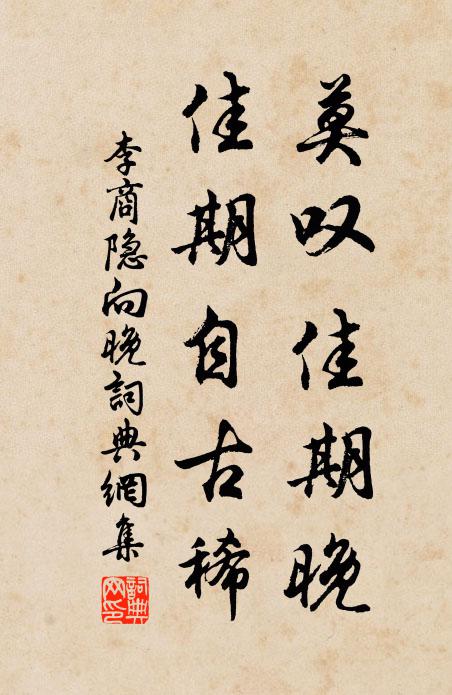 莫叹佳期晚
佳期自古稀
李商隐向晚詞典網集
詞典
网印